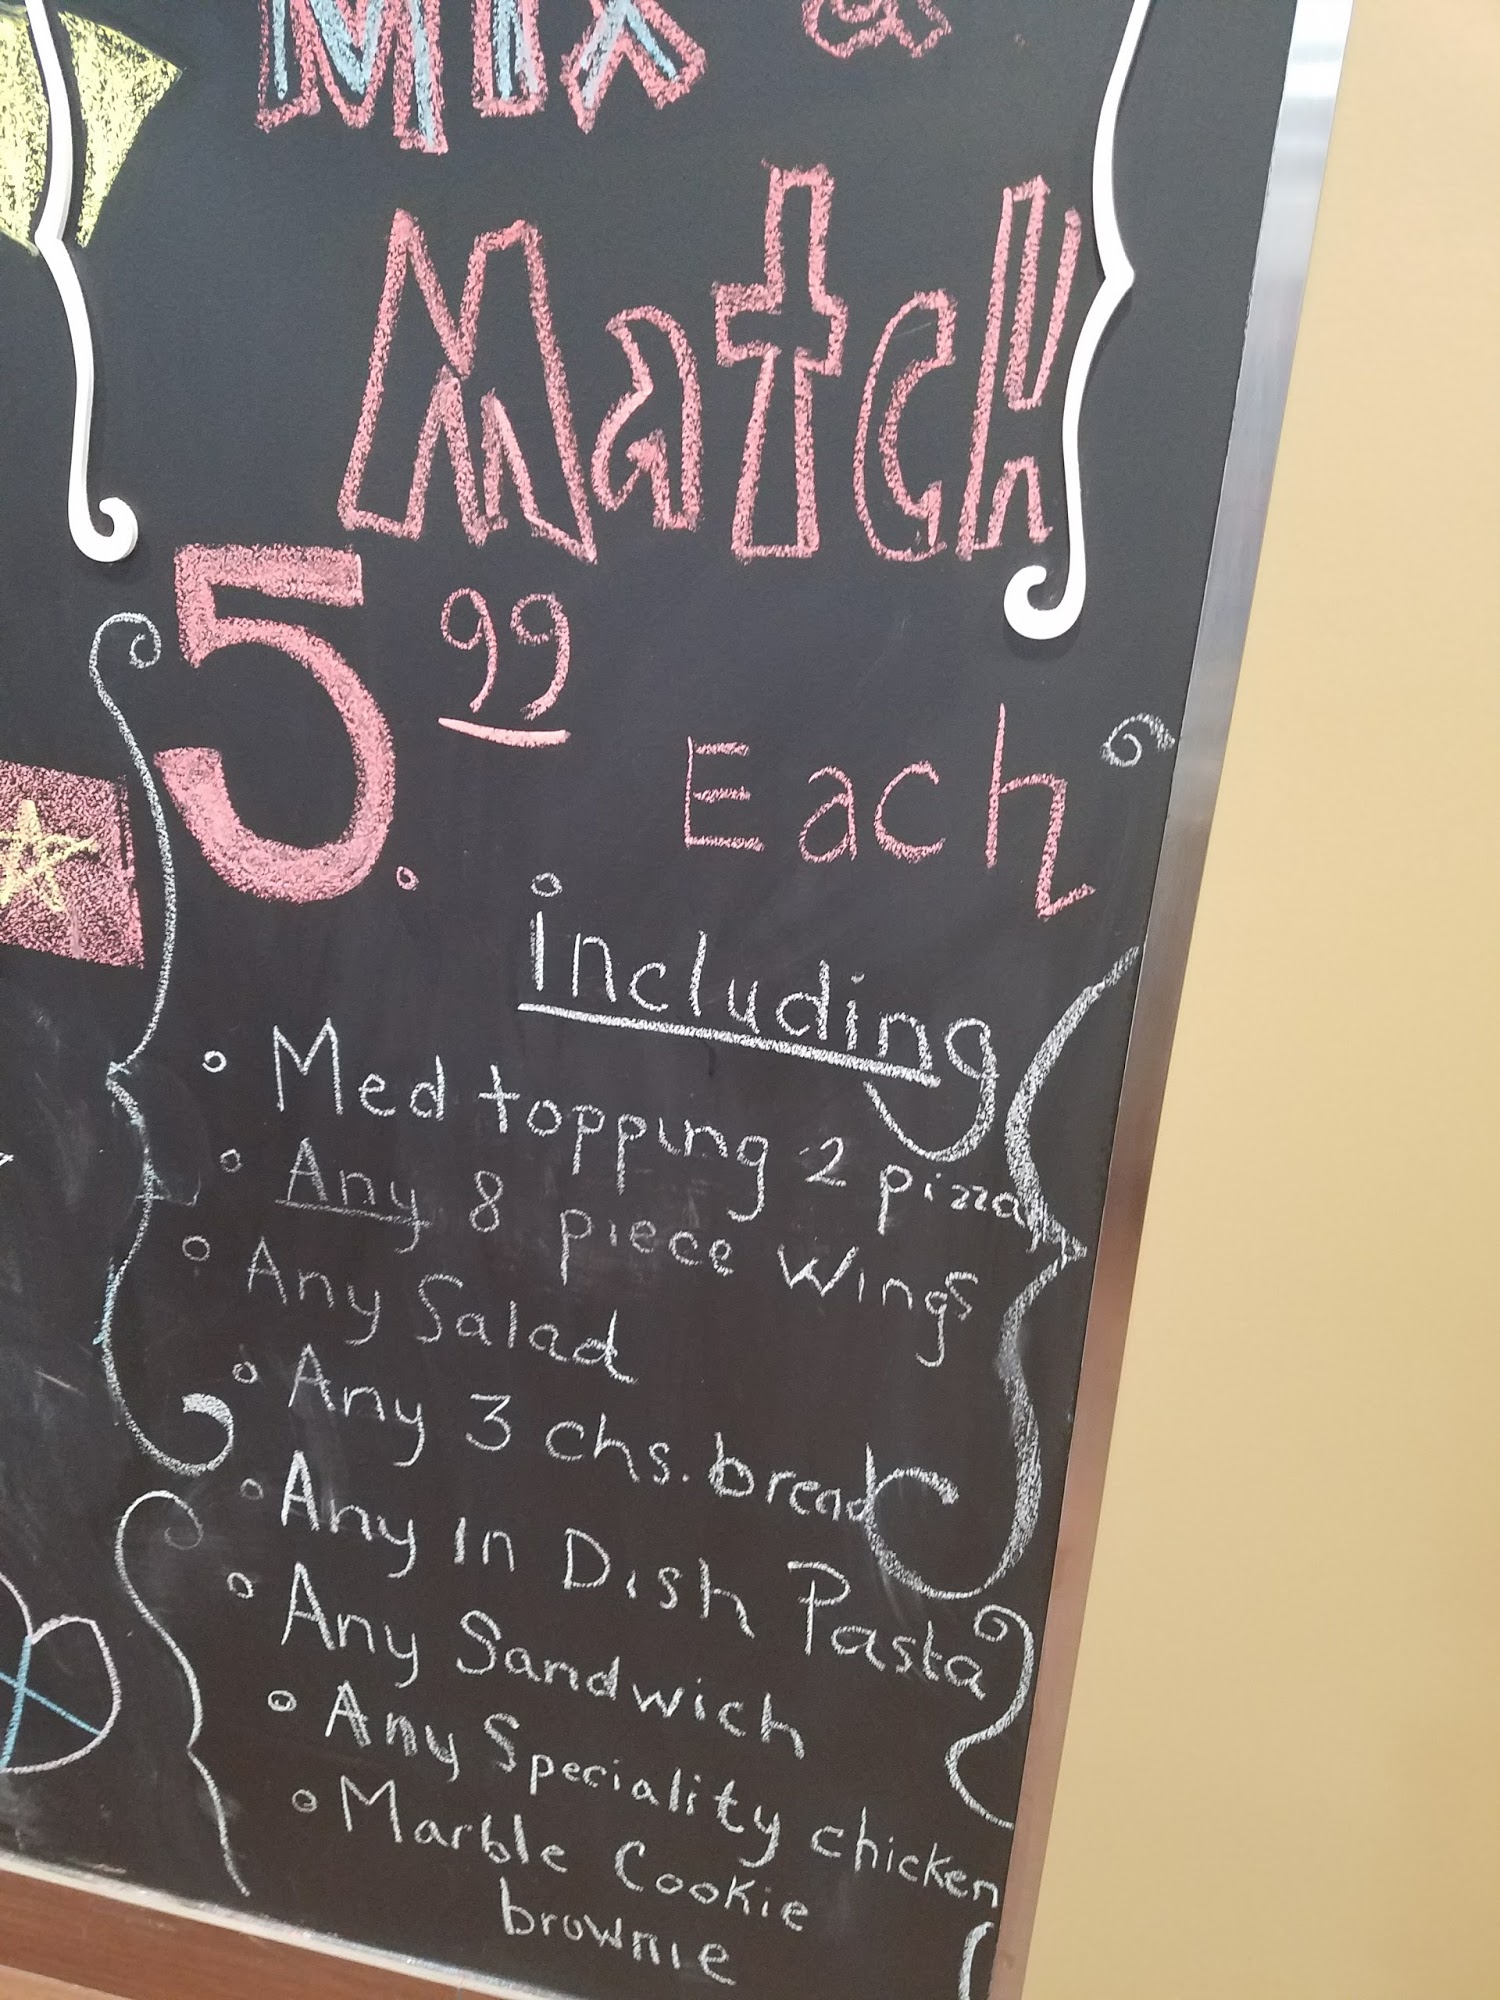 Mix &
Match
5.99
Each
including
Med topping 2 pizza
Any 8 piece Wings
Any Salad
Any 3 chs. bread
Any in Dish Pasta
Any Sandwich
Any Speciality chicken
Marble Cookie
brownie